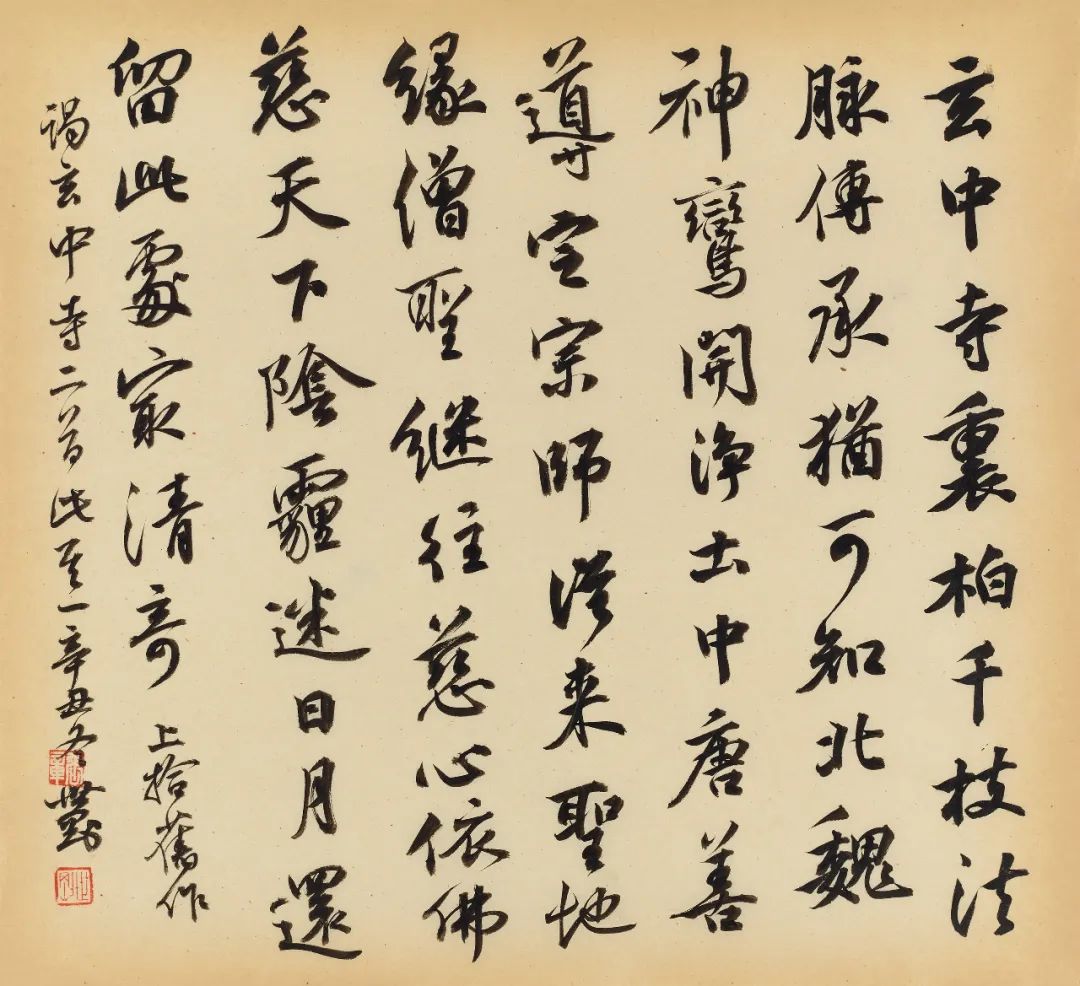 玄中寺裏柏千枝法
脉傳承猶可知北魏
神鸞開淨土中唐善
導定宗師從来聖地
緣僧聖继往慈心依佛
慈天下陰霾迷日月還
留此處冣清奇 上拾舊作
謁玄中寺二首此其一辛丑冬